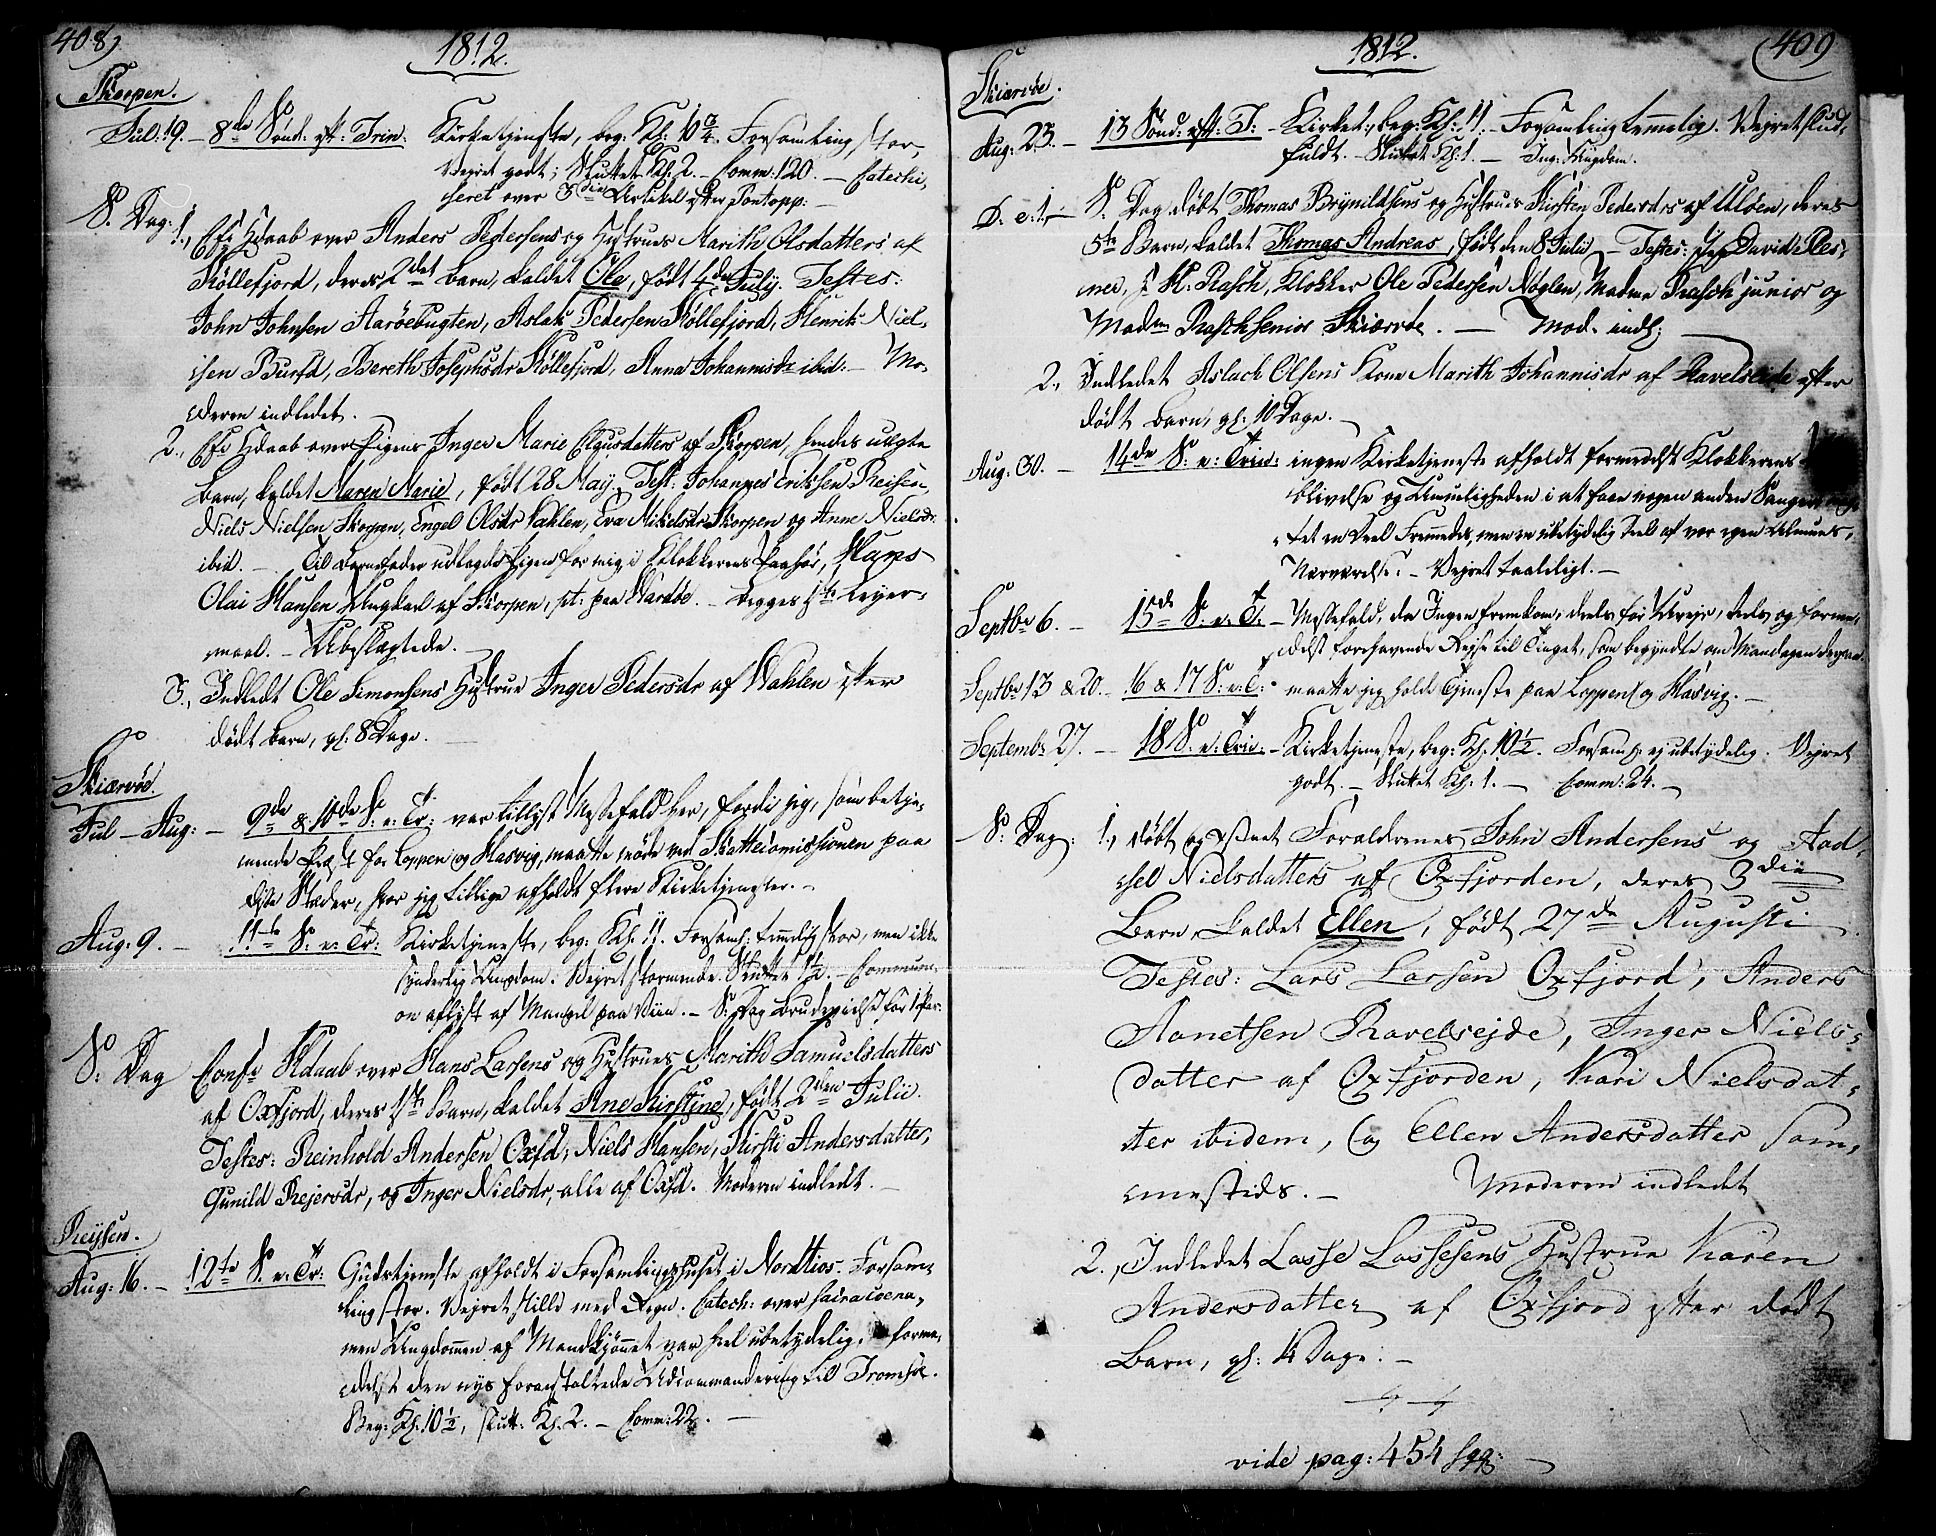 408)
1812.
Skorpen.
Jul: 19. – 8de Sønd: eft: Trin: Kirketjeneste, beg: Kl: 10 3/4. Forsamling stor,
Vejret godt; Sluttet Kl. 2. – Comm: 120. – Catechi,
seret over 3die Artikel efter Pontopp: –
S. Dag: 1., Cfi Hdaab over Anders Pedersens og Hustrues Marith Olsdatters af
Køllefjord, deres 2det Barn, kaldet Ole, født 4de Julij. Testes:
John Johnsen Aarøebugten, Aslak Pedersen Køllefjord, Henrik Niel,
sen Burfd, Bereth Josephsdr Køllefjord, Anna Johannisdr ibid: – Mo,
deren indledet. –
2., Cfi Hdaab over Pigens Inger Marie Clausdatters af Skorpen, hendes uægte
Barn, kaldet Maren Marie, født 28 May. Test: Johannes Erikssen Reisen,
Niels Nielsen Skorpen, Engel Olsdr Vahlen, Eva Mikelsdr Skorpen og Anne Nielsdr
ibid. – Til Barnefader udlagde Pigen for mig i Klokkerens Paahør, Hans
Olai Hansen Ungkarl af Skorpen, pt: paa Wardøe. – Begges 1ste Leyer,
maal. – Ubeslægtede. –
3., Indledt Ole Simonsens Hustrue Inger Pedersdr af Wahlen efter
dødt Barn, gl. 8 Dage. –
Skiærvøe.
Jul – Aug: – 9de & 10de S. e. Tr: var tillyst Messefald her, fordi jeg, som betje,
nende Præst for Loppen og Hasvig, maatte møde ved Skattecomissionen paa
disse Stæder, hvor jeg tillige afholdt flere Kirketjenester. –
Aug: 9. – 11te S. e. Tr: Kirketjeneste, beg: Kl. 11. Forsaml: temmelig stor, men ikke
synderlig Ungdom. Vejret stormende. Sluttet 1 1/2. – Communi,
on aflyst af Mangel paa Viin. – S. Dag Brudevielse for 1 Par.
S. Dag Conf: Hdaab over Hans Larsens og Hustrues Marith Samuelsdatters
af Oxfjord, deres 1ste Barn, kaldet Ane Kirstine, født 2den Julii.
Testes: Reinhold Andersen Oxfd, Niels Hansen, Kirsti Andersdatter,
Gunild Rejersdr, og Inger Nielsdr, alle af Oxfd. Moderen indledt. –
Reysen.
Aug: 16. – 12te S. e. Tr: Gudstjeneste afholdt i Forsamlingshuset i Nordtios. Forsam,
ling stor. Vejret stille med Regn. Catech: over sacra coena,
men Ungdommen af Mandkjønnet var heel ubetydelig, forme,
delst den nys foranstaltede Udcommandering til Tromsøe.
Beg: Kl. 10 1/2, slutt: Kl. 2. – Comm: 22. –
1812.
409
Skiærvøe.
Aug: 23. – 13 Sønd: eft: T: – Kirket: beg: Kl: 11. – Forsamling temmelig. Vejret slud,
fuldt. – Sluttet Kl: 1. – Ing: Ungdom.
D. e: 1. – S. Dag døbt Thomas Brynildsens og Hustrues Kirsten Pedersdrs af Uløen, deres
5te Barn, kaldet Thomas Andreas, født den 8 Julii – Testes: David Res,
men, J. H. Rasch, Klokker Ole Pedersen Nøglen, Madme Rasch junior og
Madm Rasch senior Skiærvøe. – Mod. indl: –
2., Indledet Aslach Olsens Kone Marith Johannisdr af Ravelseide efter
dødt Barn, gl. 10 Dage. –
Aug: 30. – 14de S. e: Trin: ingen Kirketjeneste afholdt formedelst Klokkerens
blivelse og Umueligheden i at faae nogen anden Sanger
tet en Deel Fremmedes, men en ubetydelig Deel af vor egen Almues,
Nærværelse. – Vejret taaleligt. –
Septbr 6. – 15de S. e. T. – Messefald, da Ingen fremkom, deels for Uvejr, deels og forme,
delst forehavende Rejse til Tinget, som begyndte om Mandagen derpaa.
Septbr 13 & 20. – 16 & 17 S. e. T. maatte jeg holde Tjeneste paa Loppen og Hasvig. –
Septembr 27. – 18 S. e. Trin. – Kirketjeneste, beg: Kl. 10 1/2. Forsaml: ej ubetydelig. Vejret
godt. – Sluttet Kl: 1. – Comm: 24. –
S. Dag: 1., døbt og Forældrenes John Andersens og Aad,
sel Nielsdatters af Oxfjorden, deres 3die
Barn, kaldet Ellen, født 27de Augusti
Testes: Lars Larsen Oxfjord, Anders
Aanetsen Ravelsejde, Inger Niels,
datter af Oxfjorden, Kari Nielsdat,
ter ibidem, og Ellen Andersdatter sam,
mestids. – Moderen indledet
2., Indledet Lasse Lassesens Hustrue Karen
Andersdatter af Oxfjord efter dødt
Barn, gl: 14 Dage. –
vide pag: 454 sqq: –